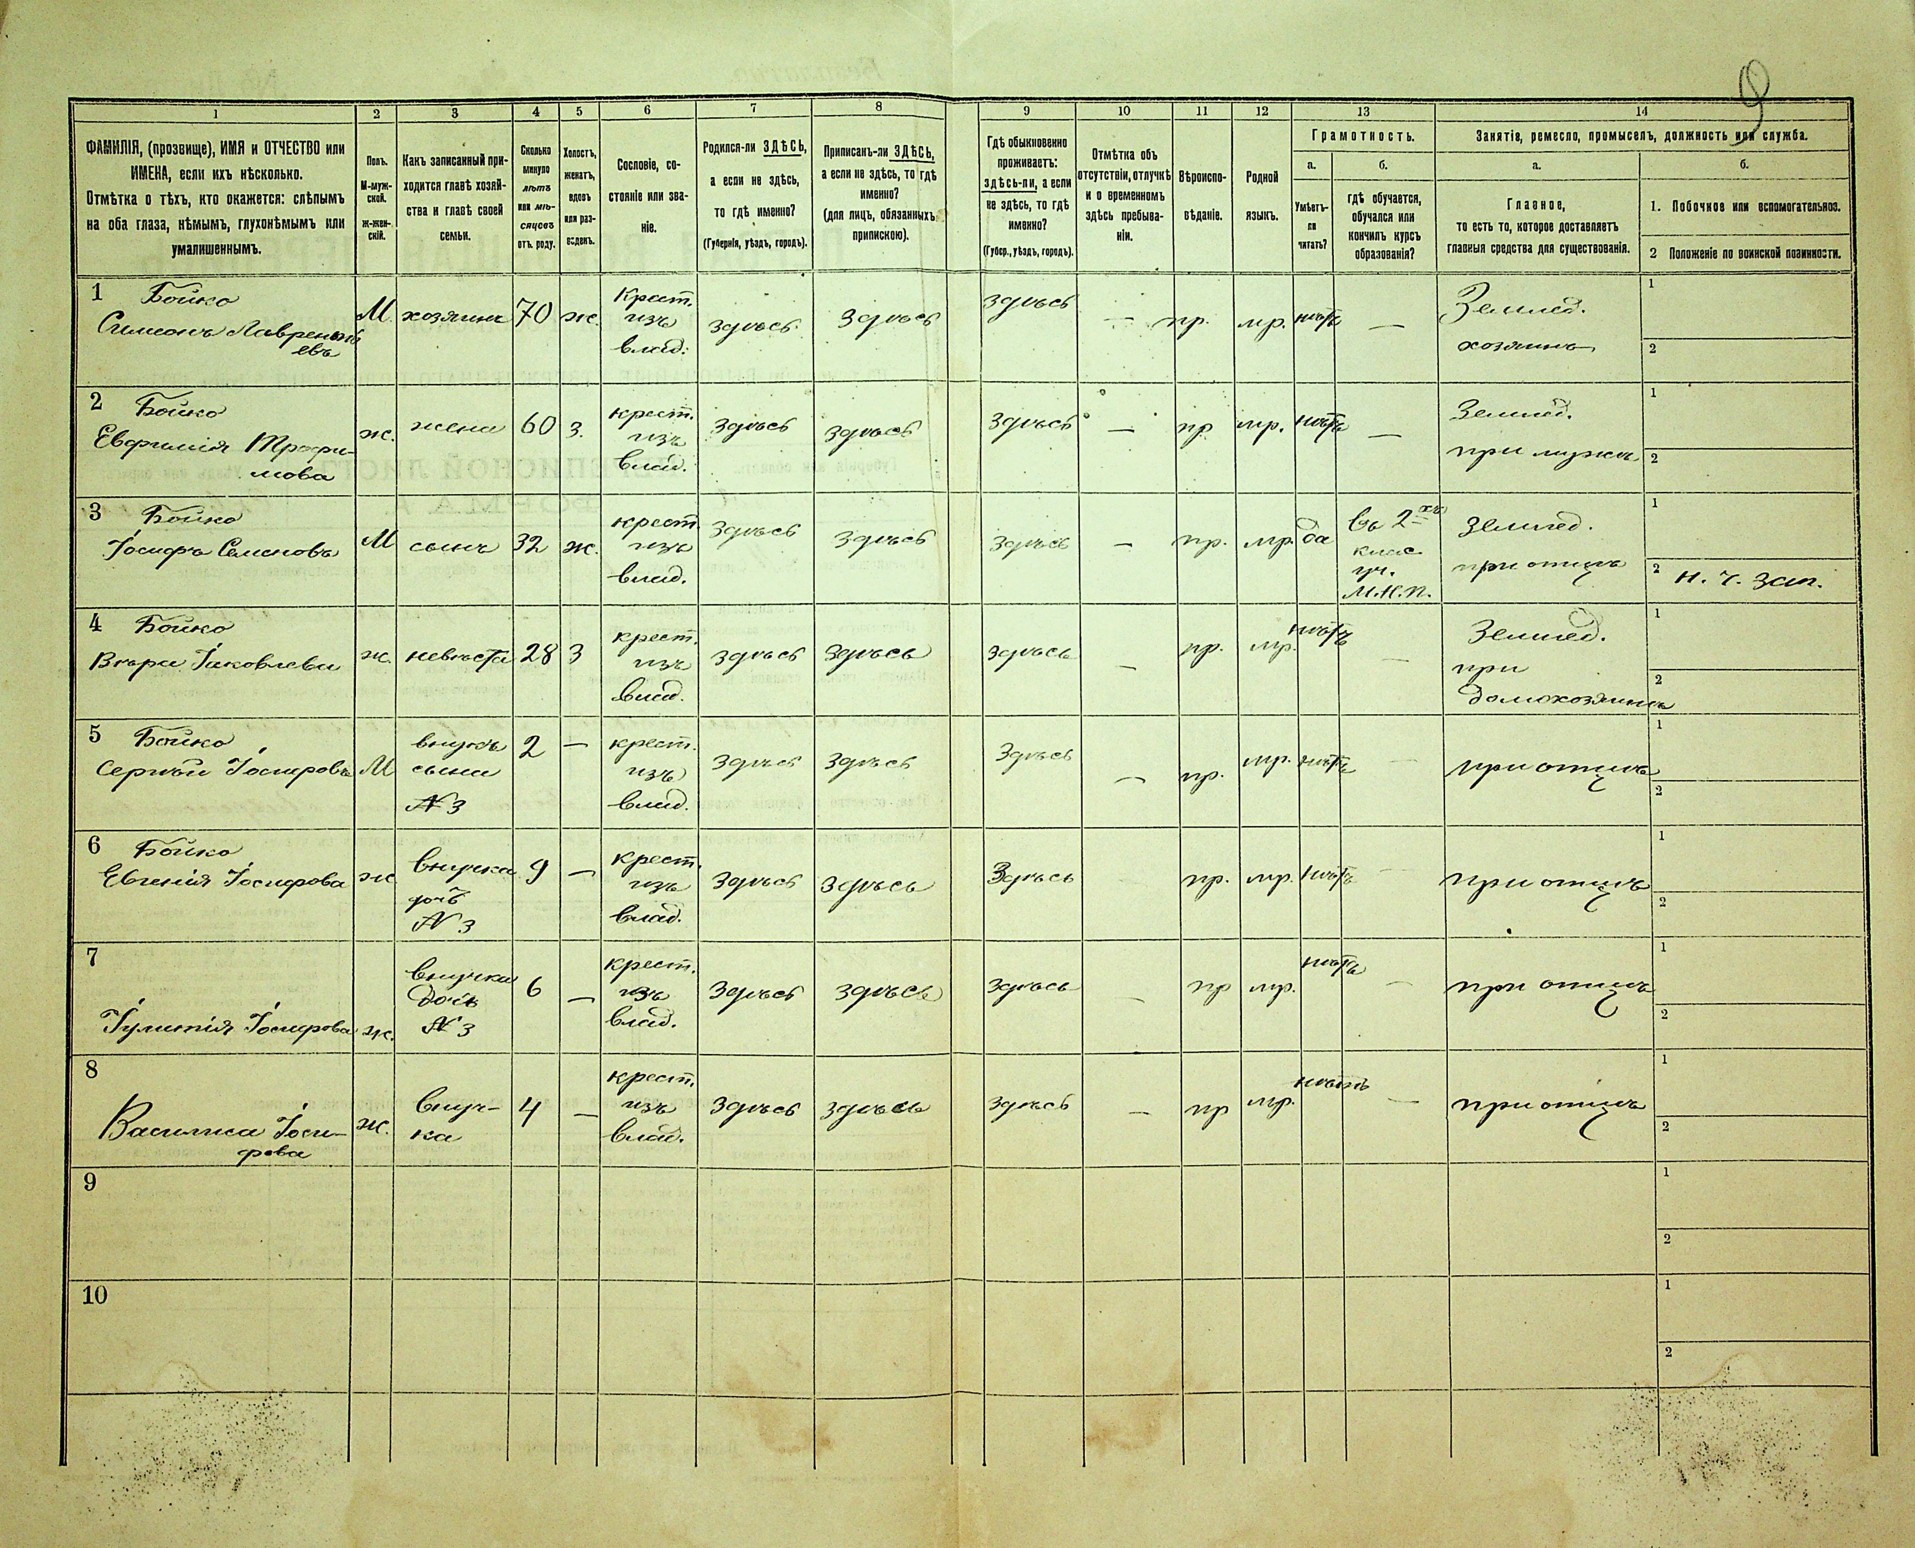 9
1
2
3
4
5
6
7
8
9
10
11
12
13
14
ФАМИЛІЯ, (прозвище), ИМЯ и ОТЧЕСТВО или
ИМЕНА, если ихъ нѣсколько.
Отмѣтка о тѣхъ, кто окажется: слѣпымъ
на оба глаза, нѣмымъ, глухонѣмымъ или
умалишеннымъ.
Полъ.
М-муж-
ской.
ж-жен-
скій.
Какъ записанный при-
ходится главѣ хозяй-
ства и главѣ своей
семьи.
Сколько
минуло
лѣтъ
или мѣ-
сяцовъ
отъ роду.
Холостъ,
женатъ,
вдовъ
или раз-
веденъ.
Сословіе, со-
стояніе или зва-
ніе.
Родился-ли ЗДѢСЬ,
а если не здѣсь,
то гдѣ именно?
(Губернія, уѣздъ, городъ).
Приписанъ-ли ЗДѢСЬ,
а если не здѣсь, то гдѣ
именно?
(для лицъ, обязанныхъ
припискою).
Гдѣ обыкновенно
проживаетъ:
здѣсь-ли, а если
не здѣсь, то гдѣ
именно?
(Губер., уѣздъ, городъ).
Отмѣтка объ
отсутствіи, отлучкѣ
и о временномъ
здѣсь пребыва-
ніи.
Вѣроиспо-
вѣданіе.
Родной
языкъ.
Грамотность.
а.
Умѣетъ-
ли
читать?
б.
гдѣ обучается,
обучался или
кончилъ курсъ
образованія?
Занятіе, ремесло, промыселъ, должность или служба.
а.
Главное,
то есть то, которое доставляетъ
главныя средства для существованія.
б.
1. Побочное или вспомогательное.
2 Положеніе по воинской повинности.
1
Бойко
Симеонъ Лаврентій
евъ
М
хозяинъ
70
ж.
Крест.
изъ
влад.
здѣсь
здѣсь
здѣсь
—
пр.
мр.
нѣтъ
—
Землед.
хозяинъ
1
2
2
Бойко
Евфимія Трофи-
мова
ж.
жена
60
з.
крест.
изъ
влад.
здѣсь
здѣсь
здѣсь
—
пр
мр.
нѣтъ
—
Землед.
при мужѣ
1
2
3
Бойко
Іосифъ Семеновъ
М
сынъ
32
ж.
крест.
изъ
влад.
здѣсь
здѣсь
здѣсь
—
пр.
мр.
да
въ 2-хъ
клас.
уч.
М.Н.П.
землед.
при отцѣ
1
2
н. ч. зап.
4
Бойко
Вѣра Іаковлева
ж.
невѣста
28
З
крест.
изъ
влад.
здѣсь
здѣсь
здѣсь
—
пр.
мр.
нѣтъ
—
Землед.
при
домохозяинѣ
1
2
5
Бойко
Сергѣй Іосифовъ
М
внукъ
сына
№ 3
2
—
крест.
изъ
влад.
здѣсь
здѣсь
здѣсь
—
пр.
мр.
нѣтъ
—
при отцѣ
1
2
6
Бойко
Евгенія Іосифова
ж
внучка
дочь
№ 3
9
—
крест.
изъ
влад.
здѣсь
здѣсь
Здѣсь
пр.
мр.
нѣтъ
—
при отцѣ
1
2
7
Іулитія Іосифова
ж.
внучка
дочь
№ 3
6
—
крест.
изъ
влад.
здѣсь
здѣсь
здѣсь
—
пр
мр.
нѣтъ
—
при отцѣ
1
2
8
Василиса Іоси-
фова
ж.
внуч-
ка
4
—
крест.
изъ
влад.
здѣсь
здѣсь
здѣсь
—
пр
мр.
нѣтъ
—
при отцѣ
1
2
9
1
2
10
1
2